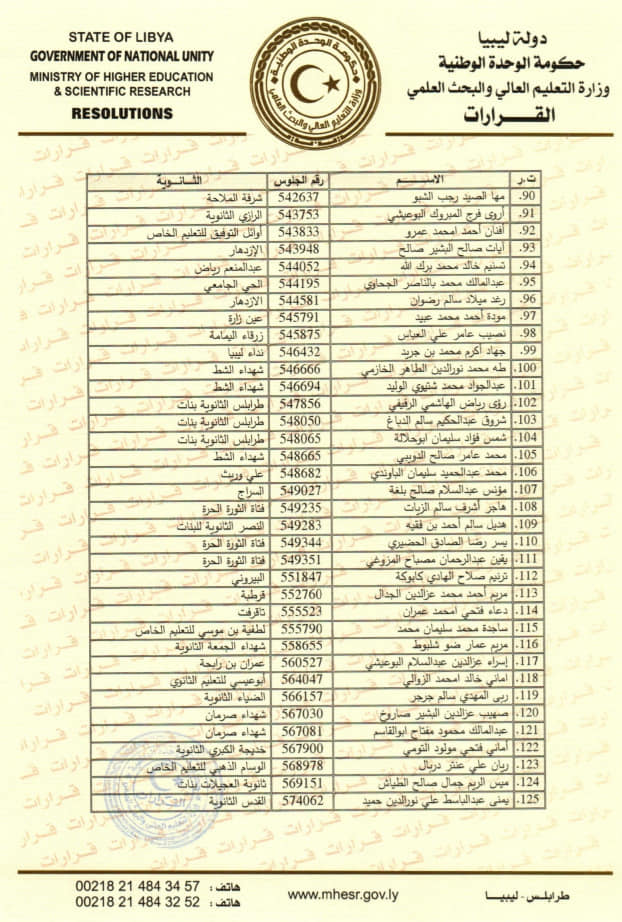 STATE OF LIBYA
GOVERNMENT OF NATIONAL UNITY
MINISTRY OF HIGHER EDUCATION
& SCIENTIFIC RESEARCH
RESOLUTIONS
حكومة الوحدة الوطنية
وزارة التعليم العالي والبحث العلمي
دولة ليبيا
حكومة الوحدة الوطنية
وزارة التعليم العالي والبحث العلمي
القـــرارات
ت.ر الاســـم رقم الجلوس الثـــانوية
90. مها الصيد رجب الشبو 542637 شرفة الملاحة
91. أروى فرج المبروك البوعيشي 543753 الرازي الثانوية
92. أفنان أحمد امحمد عمرو 543833 أوائل التوفيق للتعليم الخاص
93. آيات صالح البشير صالح 543948 الإزدهار
94. تسنيم خالد محمد برك الله 544052 عبدالمنعم رياض
95. عبدالمالك محمد بالناصر الجحاوي 544195 الحي الجامعي
96. رغد ميلاد سالم رضوان 544581 الازدهار
97. مودة أحمد محمد عبيد 545791 عين زارة
98. نصيب عامر علي العباس 545875 زرقاء اليمامة
99. جهاد أكرم محمد بن جريد 546432 نداء ليبيا
100. طه محمد نورالدين الطاهر الخازمي 546666 شهداء الشط
101. عبدالجواد محمد شتيوي الوليد 546694 شهداء الشط
102. رؤى رياض الهاشمي الرقيفي 547856 طرابلس الثانوية بنات
103. شروق عبدالحكيم سالم الدباغ 548050 طرابلس الثانوية بنات
104. شمس فؤاد سليمان ابوحلالة 548065 طرابلس الثانوية بنات
105. محمد عامر صالح الدويبي 548665 شهداء الشط
106. محمد عبدالحميد سليمان الباوندي 548682 علي وريث
107. مؤنس عبدالسلام صالح بلغة 549027 السراج
108. هاجر أشرف سالم الزيات 549235 فتاة الثورة الحرة
109. هديل سالم أحمد بن فقيه 549283 النصر الثانوية للبنات
110. يسر رضا الصادق الحضيري 549344 فتاة الثورة الحرة
111. يقين عبدالرحمان مصباح المزوغي 549351 فتاة الثورة الحرة
112. ترنيم صلاح الهادي كابوكة 551847 البيروني
113. مريم أحمد محمد عزالدين الجدال 552760 قرطبة
114. دعاء فتحي امحمد عمران 555523 تاقرفت
115. ساجدة محمد سليمان محمد 555790 لطفية بن موسي للتعليم الخاص
116. مريم عمار ضو شلبوط 558655 شهداء الجمعة الثانوية
117. إسراء عزالدين عبدالسلام البوعيشي 560527 عمران بن رابحة
118. اماني خالد امحمد الزوالي 564047 أبوعيسي للتعليم الثانوي
119. ربى المهدي سالم جرجر 566157 الضياء الثانوية
120. صهيب عزالدين البشير صاروخ 567030 شهداء صرمان
121. عبدالمالك محمود مفتاح ابوالقاسم 567081 شهداء صرمان
122. أماني فتحي مولود التومي 567900 خديجة الكبري الثانوية
123. ريان علي عنتر دربال 568978 الوسام الذهبي للتعليم الخاص
124. ميس الريم جمال صالح الطياش 569151 ثانوية العجيلات بنات
125. يمنى عبدالباسط علي نورالدين حميد 574062 القدس الثانوية
طرابلـس - ليبيـــا
www.mhesr.gov.ly
هاتف: 00218 21 484 34 57
هاتف: 00218 21 484 32 52